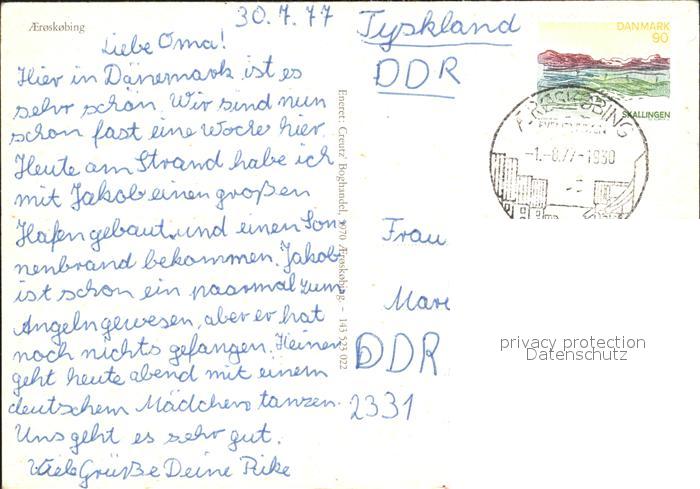 Ærøskøbing
30.7.77
Liebe Oma!
Hier in Dänemark ist es
sehr schön. Wir sind nun
schon fast eine Woche hier.
Heute am Strand habe ich
mit Jakob einen großen
Hafen gebaut und einen Son-
nenbrand bekommen. Jakob
ist schon ein paarmal zum
Angeln gewesen, aber er hat
noch nichts gefangen. Heiner
geht heute abend mit einem
deutschen Mädchen tanzen.
Uns geht es sehr gut.
Viele Grüße Deine Rike
Eneret: Creutz' Boghandel, 5970 Ærøskøbing. – 143 523 022
Tyskland
DDR
DANMARK
90
SKALLINGEN
ÆRØSKØBING
-1.-8.77-1930
Frau
Mari
DDR
2331
privacy protection
Datenschutz